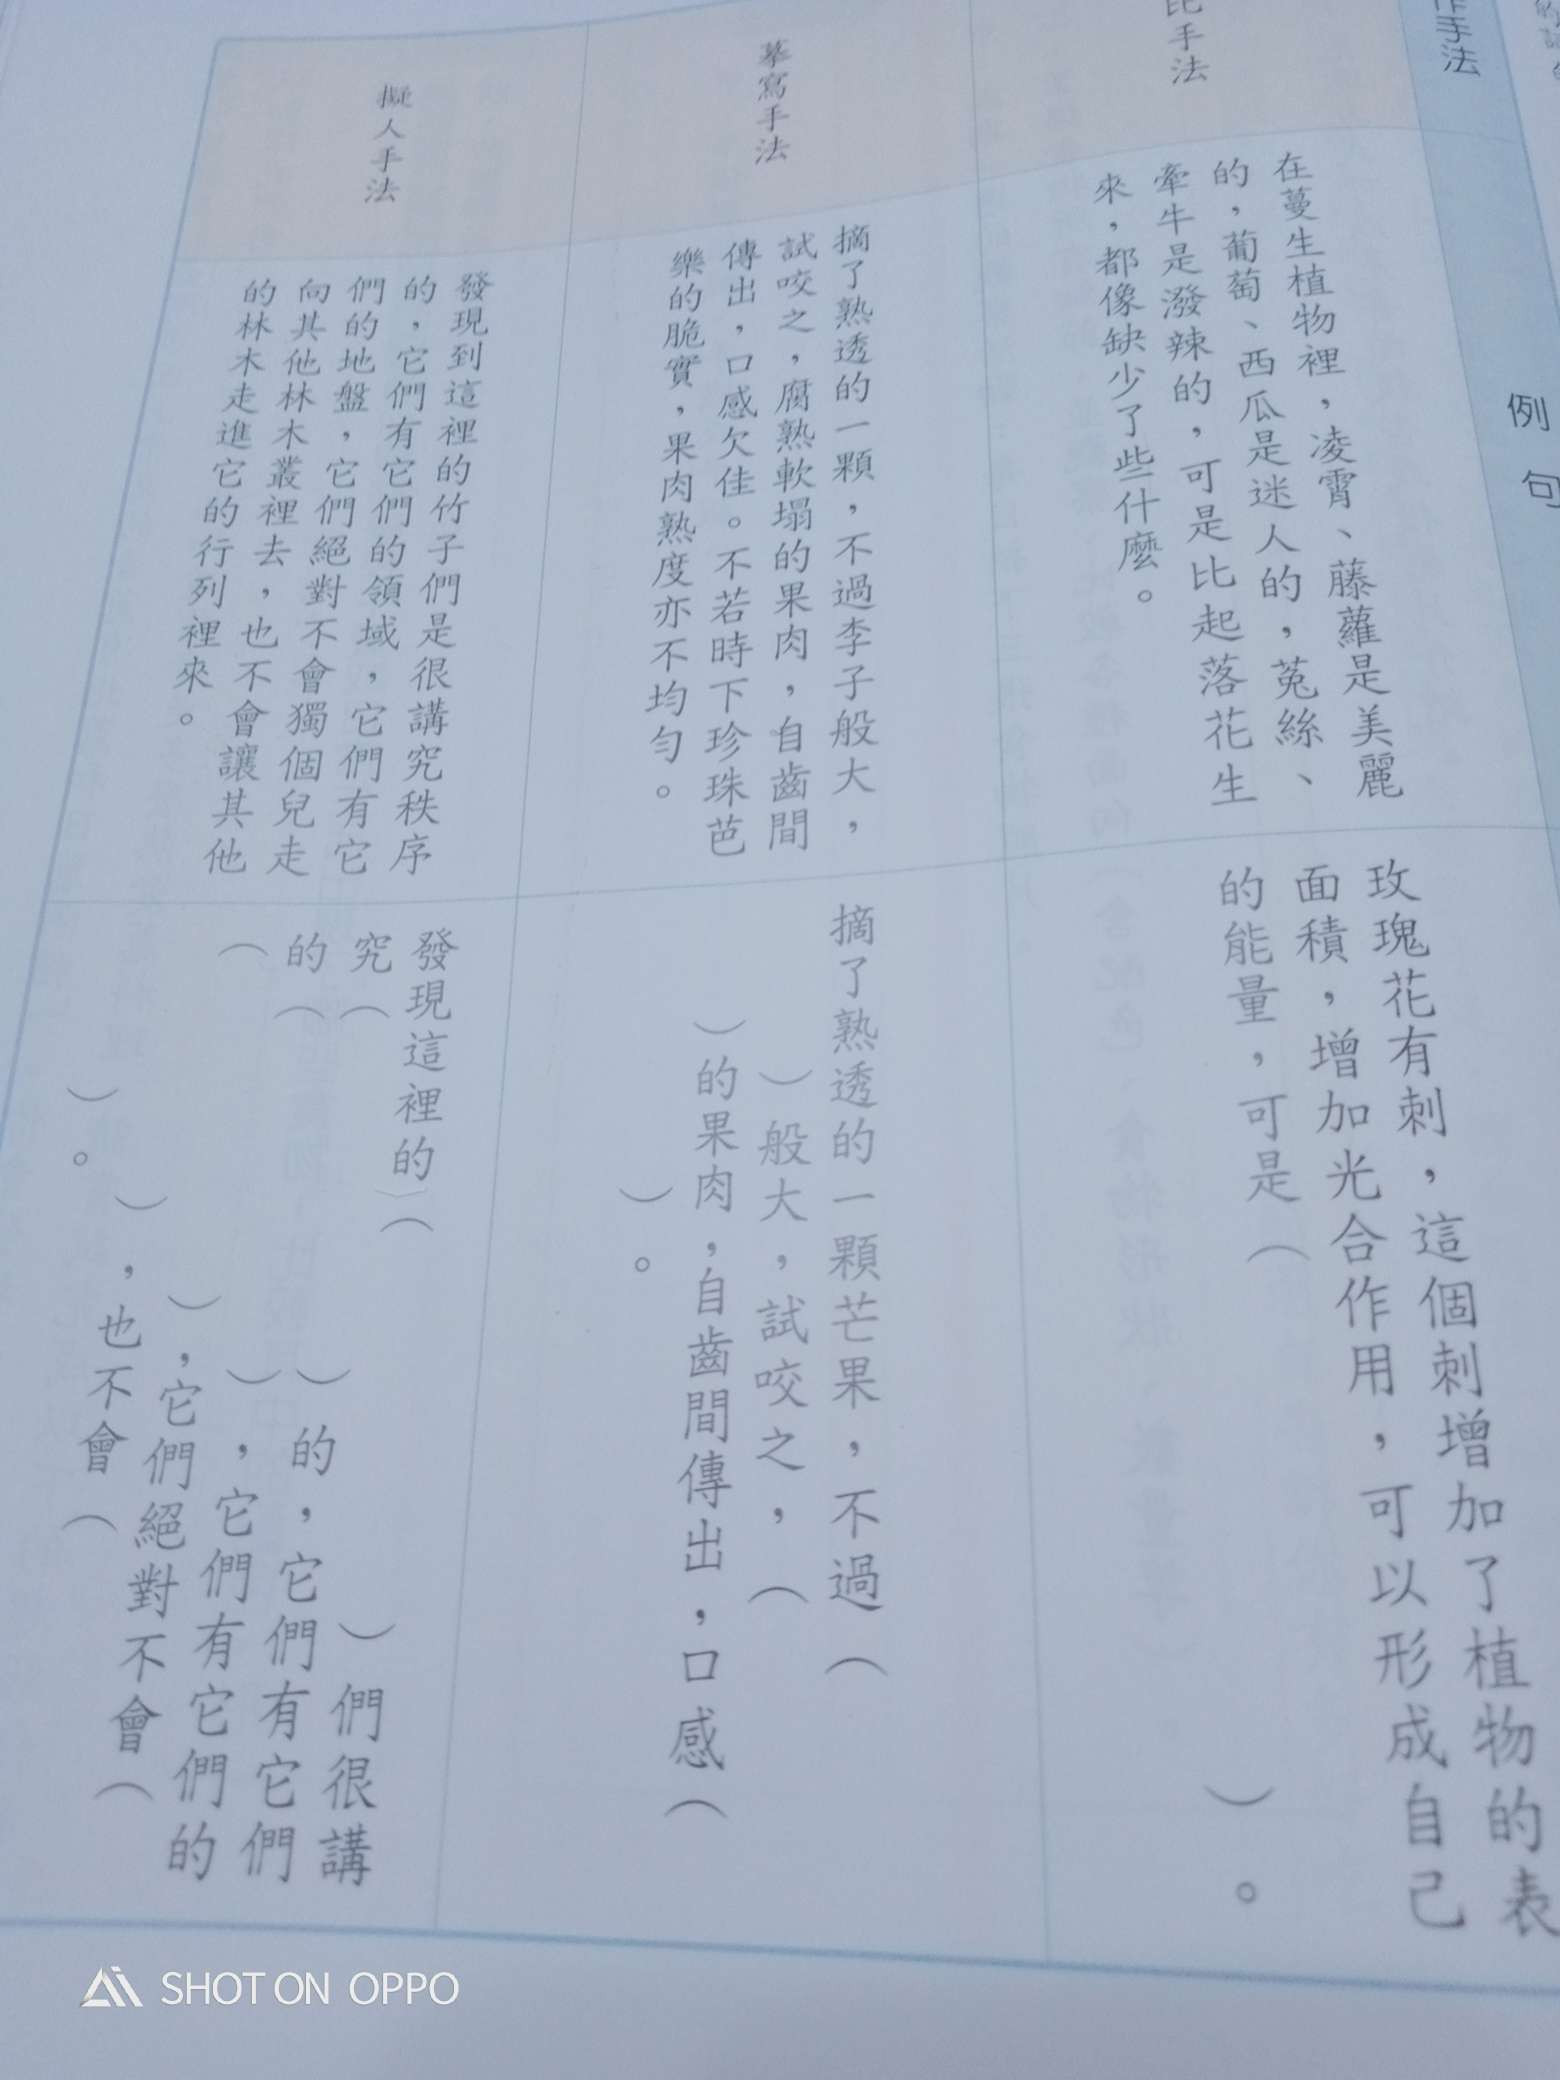 作手法
例句
比手法
在蔓生植物裡，凌霄、藤蘿是美麗
的，葡萄、西瓜是迷人的，菟絲、
牽牛是潑辣的，可是比起落花生
來，都像缺少了些什麼。
玫瑰花有刺，這個刺增加了植物的表
面積，增加光合作用，可以形成自己
的能量，可是（　　　）。
摹寫手法
摘了熟透的一顆，不過李子般大，
試咬之，腐熟軟塌的果肉，自齒間
傳出，口感欠佳。不若時下珍珠芭
樂的脆實，果肉熟度亦不均勻。
摘了熟透的一顆芒果，不過（
）般大，試咬之，（
）的果肉，自齒間傳出，口感（
）。
擬人手法
發現到這裡的竹子們是很講究秩序
的，它們有它們的領域，它們有它
們的地盤，它們絕對不會獨個兒走
向其他林木叢裡去，也不會讓其他
的林木走進它的行列裡來。
發現這裡的（　　　）們很講
究（　　　）的，它們有它們
的（　　　），它們有它們的
（　　　），它們絕對不會（
），也不會（
）。
SHOT ON OPPO